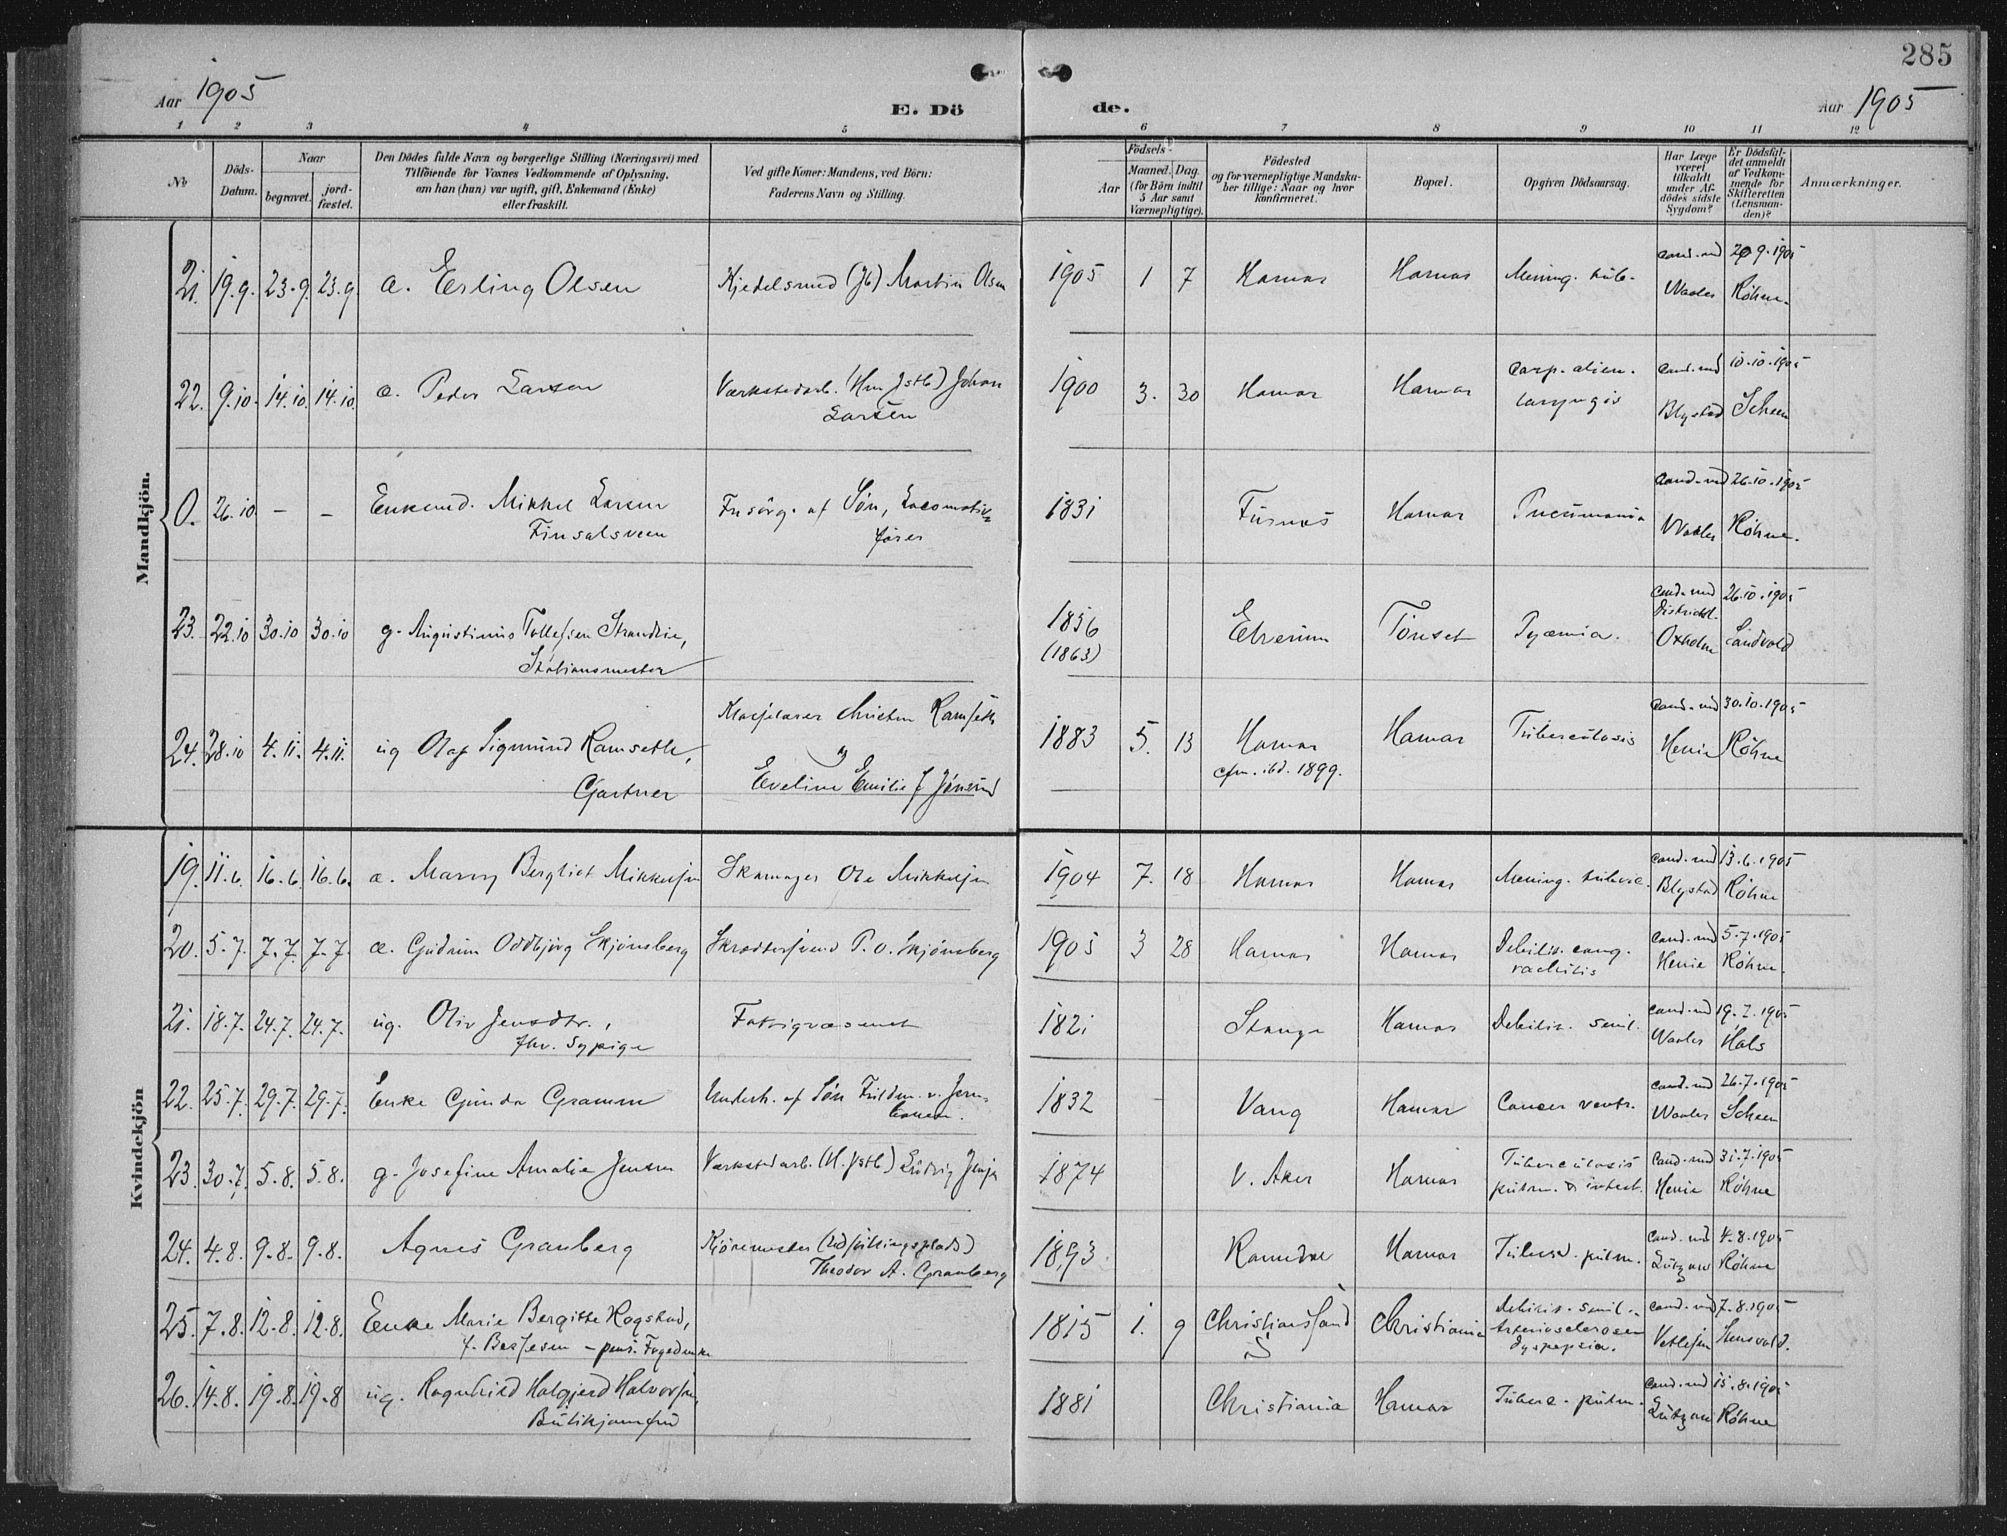 285
Aar 1905
E. Dö
de.
Aar 1905
1 2 3 4 5 6 7 8 9 10 11 12
No
Döds-
Datum.
Naar
begravet.
jord-
fæstet.
Den Dödes fulde Navn og borgerlige Stilling (Næringsvei) med
Tilföiende for Voxnes Vedkommende af Oplysning,
om han (hun) var ugift, gift, Enkemand (Enke)
eller fraskilt.
Ved gifte Koner: Mandens, ved Börn:
Faderens Navn og Stilling.
Födsels-
Aar
Maaned. Dag.
(for Börn indtil
5 Aar samt
Værnepligtige).
Födested
og for værnepligtige Mandska-
ber tillige: Naar og hvor
konfirmeret.
Bopæl.
Opgiven Dödsaarsag.
Har Læge
været
tilkaldt
under Af-
dödes sidste
Sygdom?
Er Dödsfal-
det anmeldt
af Vedkom-
mende for
Skifteretten
(Lensman-
den)?
Anmærkninger.
Mandkjön.
21. 19.9. 23.9. 23.9. a. Erling Olsen Kjedelsmed (Jb) Martin Olsen 1905 1 7 Hamar Hamar Mening. tub. cand. med Waaler 20 9.1905 Röhne.
22. 9.10. 14.10. 14.10. a. Peder Larsen Værkstedarb. (Hm Jstb) Johan
Larsen 1900 3. 30 Hamar Hamar corp. alien.
laryngis cand. med Blystad 10.10.1905 Scheen
0. 26.10 - - Enkemd. Mikkel Larsen
Finsalsveen Forsörg. af Sön, Locomotiv-
förer 1831 Furnes Hamar Pneumonia cand. med Waaler 26.10.1905 Röhne.
23. 22.10 30.10 30.10 g. Augustinus Tollefsen Strandlie,
Stationsmester 1856
(1863) Elverum Tönset Pyæmia. cand. med
Districtsl.
Oxholm 26.10.1905 Sandvold
24. 28.10 4.11. 4.11. ug Olaf Sigmund Ramseth,
Gartner Klokkelærer Christen Ramseth
og
Eveline Emilie f Jönsrud 1883 5. 13 Hamar
cfm. ibd. 1899. Hamar Tuberculosis cand. med Henie 30.10.1905 Röhne
Kvindekjön
19. 11.6. 16.6. 16.6. a. Marry Bergliot Mikkelsen Skomager Ole Mikkelsen 1904 7. 18 Hamar Hamar Mening. tuberc. cand. med Blystad 13.6.1905 Röhne
20. 5.7. 7.7. 7.7. a. Gudrun Oddbjörg Skjönsberg Skrædersvend P. O. Skjönsberg 1905 3 28 Hamar Hamar Debilit. cong.
rachitis cand. med Henie 5.7.1905 Röhne.
21. 18.7. 24.7. 24.7. ug. Oliv Jensdtr.,
fhv. Sypige Fattigvæsenet 1821 Stange Hamar Debilit. senil. cand. med Waaler 19.7.1905 Hals
22. 25.7. 29.7. 29.7. Enke Gunda Gramm Underh. af Sön Fuldm. v. Jern-
banen. 1832 Vang Hamar Cancer ventr. cand. med Waaler 26.7.1905 Scheen
23. 30.7. 5.8. 5.8. g. Josefine Amalie Jensen Værkstedarb. (H. Jstb) Ludvig Jensen 1874 V. Aker Hamar Tuberculosis
pulm. & intest. cand. med Henie 31.7.1905 Röhne
24. 4.8. 9.8. 9.8. Agnes Granberg Kjöremester (Udstillingsplads)
Theodor A. Granberg 1893 Romedal Hamar Tuberc. pulm. cand. med Lützow 4.8.1905 Röhne
25. 7.8. 12.8. 12.8. Enke Marie Bergitte Rogstad,
f. Bessesen - pens. Fogedenke 1815 1. 9 Christianssand
S Christiania Debilit. senil.
Arteriosclerosen
dyspepsia. cand. med Vetlesen 7.8.1905 Stensvold.
26. 14.8. 19.8. 19.8 ug. Ragnhild Halgjerd Halvorsen,
Butikjomfru 1881 Christiania Hamar Tuberc. pulm. cand. med Lützow 15.8.1905 Röhne